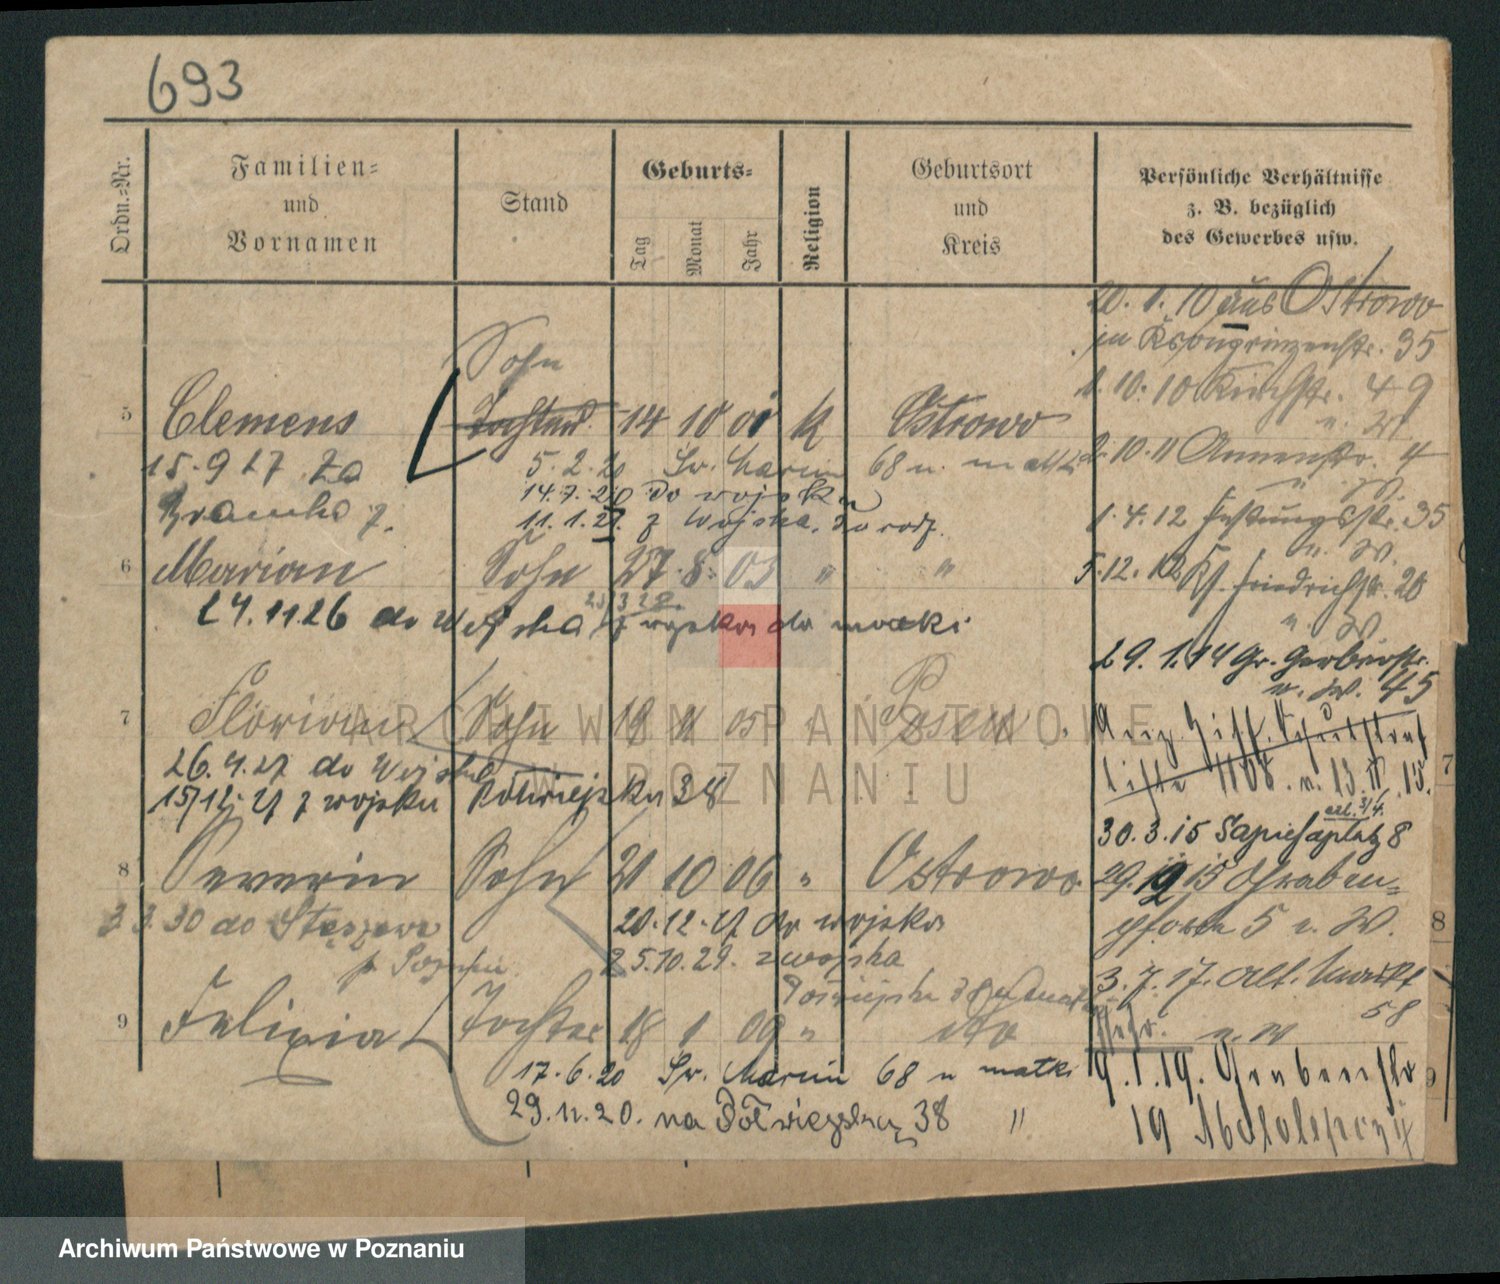 693
Ordn.-Nr.
Familien-
und
Vornamen
Stand
Geburts-
Tag
Monat
Jahr
Religion
Geburtsort
und
Kreis
Persönliche Verhältnisse
z. B. bezüglich
des Gewerbes usw.
20. 1. 10 aus Ostrowo
in Kronprinzenstr. 35
1. 10. 10 Kirchstr. 49
u. W
Sohn
5 Clemens Tochter 14 10 01 k Ostrowo
15. 9 27 za
5. 2. 20 Św. Marcin 68 u. matki
2. 10. 11 Annenstr. 4
u. W.
14. 7. 20 do wojska
11. 1. 21. z wojska.
1. 4. 12 Festungsstr. 35
u. W.
6 Marian Sohn 27. 8. 03 " "
5. 12. 12 Kl. Friedrichstr. 20
u. W
24. 11. 26 do Wojska z wojska do matki
29. 1. 14 Gr. Gerberstr.
u. W. 45
7 Florian Sohn 19 11 05 " Posen
26. 4. 27 do Wojska
15/12. 27 z wojska Półwiejska 38
Liste 1168. v. 13. 11. 15.
30. 3. 15 Sapiehaplatz 8
8 Severin Sohn 21 10 06 " Ostrowo.
29. 12 15 Graben-
pforte 5 u. W.
3. 3. 30 do Stęszewa
20. 12. 27 do wojska
25. 10. 29. z wojska
3. 7. 17. Alt. Markt
58
Półwiejska 38 u matki
9 Felixia Tochter 18 1 09 " dto
u. W
17. 6. 20 Św. Marcin 68 u matki
9. 1. 19. Grabenstr
29. 11. 20. na Półwiejską 38 "
19
7
8
9
ARCHIWUM PAŃSTWOWE
W POZNANIU
Archiwum Państwowe w Poznaniu